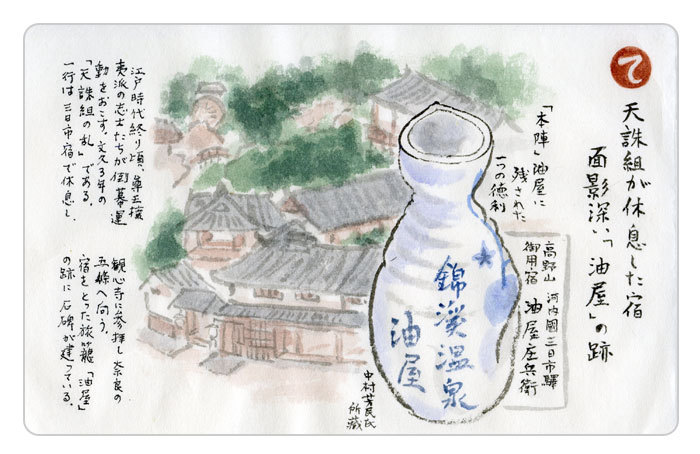 て
天誅組が休息した宿
面影深い「油屋」の跡
「本陣」油屋に
残された
一つの徳利
高野山 河内國三日市驛
御用宿 油屋庄兵衛
錦溪温泉
油屋
中村芳民氏
所蔵
江戸時代終り頃、尊王攘
夷派の志士たちが倒幕運
動をおこす。文久3年の
「天誅組の乱」である。
一行は三日市宿で休息し
観心寺に参拝し奈良の
五條へ向う。
宿をとった旅籠「油屋」
の跡に石碑が建っている。